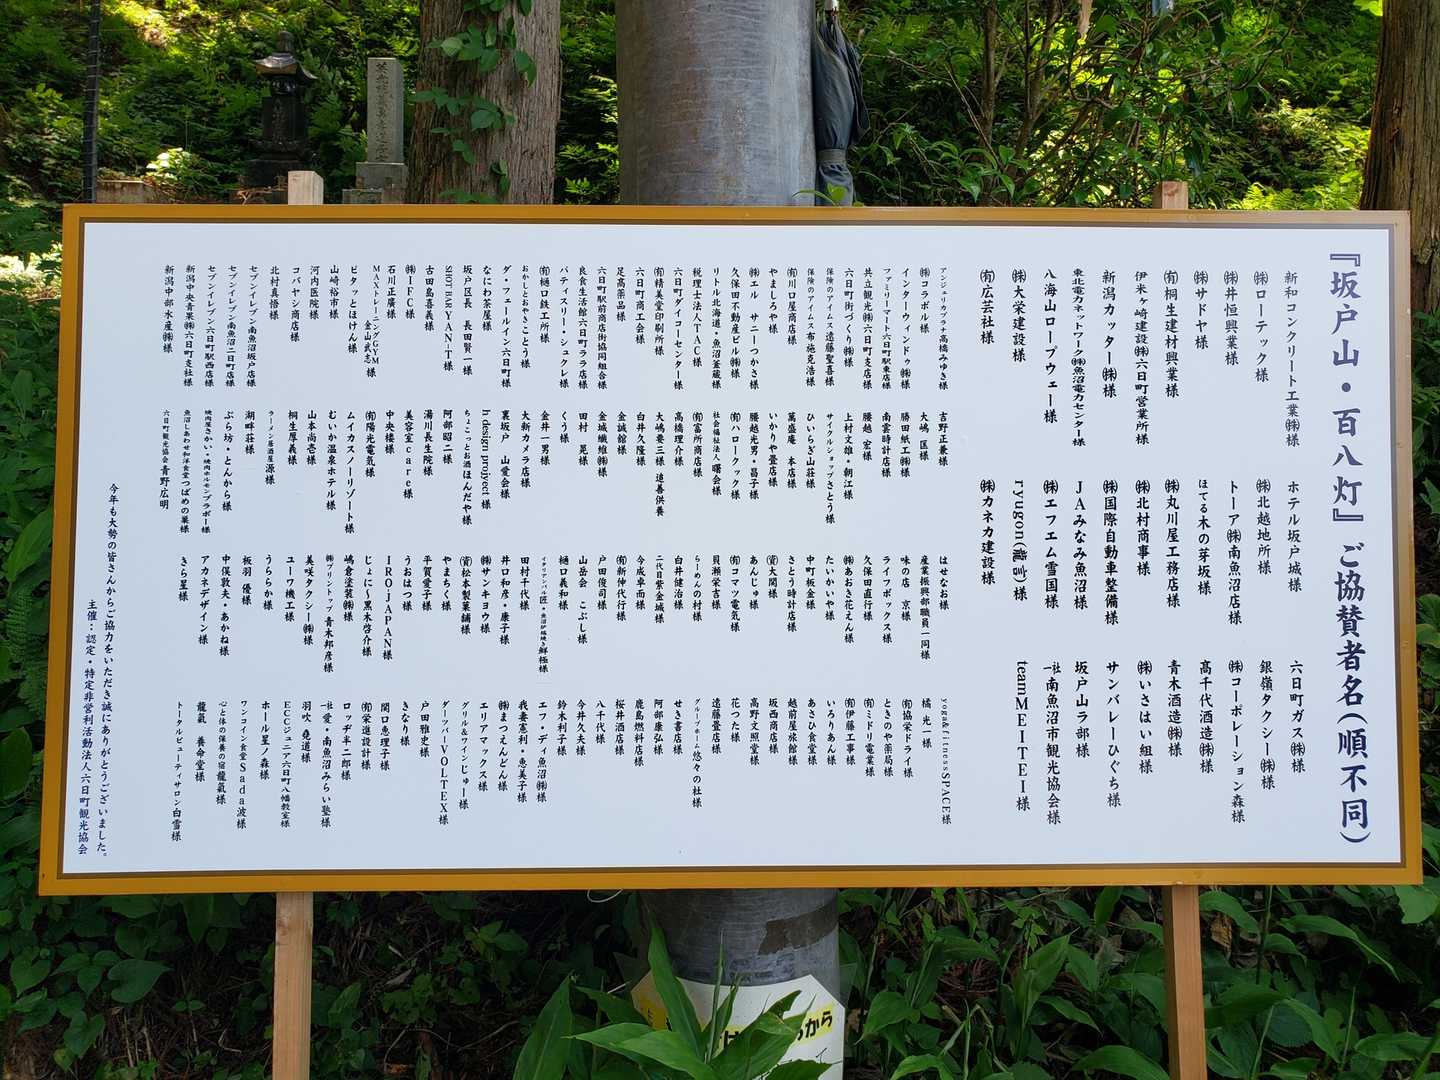 『坂戸山・百八灯』ご協賛者名(順不同)
新和コンクリート工業㈱様
㈱ローテック様
㈱井恒興業様
㈱サドヤ様
㈲桐生建材興業様
伊米ヶ崎建設㈱六日町営業所様
新潟カッター㈱様
東北電力ネットワーク㈱魚沼電力センター様
八海山ロープウェー様
㈱大栄建設様
㈲広芸社様
ホテル坂戸城様
㈱北越地所様
トーア㈱南魚沼店様
ほてる木の芽坂様
㈱丸川屋工務店様
㈱北村商事様
㈱国際自動車整備様
JAみなみ魚沼様
㈱エフエム雪国様
ryugon(龍言)様
㈱カネカ建設様
六日町ガス㈱様
銀嶺タクシー㈱様
㈱コーポレーション森様
髙千代酒造㈱様
青木酒造㈱様
㈱いさはい組様
サンバレーひぐち様
坂戸山ラ部様
一社南魚沼市観光協会様
teamMEITEI様
アンジェリカヅラナ高橋みゆき様
㈱コラボル様
インターウィンドウ㈱様
ファミリーマート六日町駅東店様
共立観光㈱六日町支店様
六日町街づくり㈱様
保険のアイムス遠藤聖喜様
保険のアイムス布施克浩様
㈲川口屋商店様
やましろや様
㈱エル サニーつかさ様
久保田不動産ビル㈱様
リトル北海道・魚沼釜蔵様
税理士法人TAC様
六日町ダイコーセンター様
㈲精美堂印刷所様
六日町商工会様
足高薬品様
六日町駅前商店街協同組合様
良食生活館六日町ララ店様
パティスリー・シュクレ様
㈲樋口鉄工所様
おかしとおやきことう様
ダ・フェールイン六日町様
なにわ茶屋様
坂戸区長 長田賢一様
SHOT BAR YANI-T様
古田島喜義様
㈱IFC様
石川正廣様
MAXトレーニングGYM 金山武志様
ピタッとほけん様
山﨑裕市様
河内医院様
コバヤシ商店様
北村真悟様
セブンイレブン南魚沼坂戸店様
セブンイレブン南魚沼二日町店様
セブンイレブン六日町駅西店様
新潟中央青果㈱六日町支社様
新潟中部水産㈱様
吉野正兼様
大嶋 匡様
勝田紙工㈱様
南雲時計店様
腰越 宏様
上村文雄・朝江様
サイクルショップさとう様
ひいらぎ山荘様
萬盛庵 本店様
いかりや畳店様
腰越光男・昌子様
㈲ハロークック様
社会福祉法人曙会様
㈲富所商店様
高橋理介様
大嶋要三様 追善供養
白井久隆様
金誠館様
金城繊維㈱様
田村 晃様
くう様
金井一男様
大新カメラ店様
裏坂戸 山愛会様
h design project様
ちょこっとお酒ほんだや様
阿部昭二様
湯川長生院様
美容室care様
中央楼様
㈲陽光電気様
ムイカスノーリゾート様
むいか温泉ホテル様
山本尚壱様
桐生厚義様
ラーメン居酒屋源様
湖畔荘様
ぶら坊・とんから様
焼肉屋さかい・焼肉ホルモンブラボー様
魚沼しあわせ和洋食堂つばめの巣様
六日町観光協会青野広明
はせなお様
産業振興部職員一同様
味の店 京様
ライフボックス様
久保田直行様
㈱あおき花えん様
たいかいや様
中町板金様
さとう時計店様
㈾大関様
あんじゅ様
㈲コマツ電気様
貝瀬栄吉様
らーめんの村様
白井健治様
二代目紫金城様
今成卓而様
㈲新伸代行様
戸田俊司様
山岳会 こぶし様
樋口義和様
イタリアンバル匠・魚沼炉端焼き鮮極様
田村千代様
井口和彦・康子様
㈱サンキョウ様
㈾松本製菓舗様
やまらく様
平賀愛子様
うおはつ様
IRO-JAPAN様
じょに〜黒木啓介様
嶋倉塗装㈱様
㈱プリントップ 青木邦彦様
美咲タクシー㈱様
ユーワ機工様
うららか様
板羽 優様
中俣敦夫・あかね様
アカネデザイン様
きら星様
yoga&fitnessSPACE様
橘 光一様
㈲協栄ドライ様
ときのや薬局様
㈲ミドリ電業様
㈲伊藤工事様
いろりあん様
あさひ食堂様
越前屋旅館様
坂西商店様
髙野文照堂様
花つた様
遠藤畳店様
グループホーム悠々の杜様
せき書店様
阿部康弘様
鹿島燃料店様
桜井酒店様
八千代様
今井久夫様
鈴木利子様
エフ・ディ魚沼㈱様
我妻憲利・恵美子様
㈱まつえんどん様
エリアマックス様
グリル&ワインじゅー様
ダーツバーVOLTEX様
戸田雅史様
きなり様
関口恵理子様
㈲栄進設計様
ロッヂ半二郎様
一社愛・南魚沼みらい塾様
羽吹 堯道様
ECCジュニア六日町八幡教室様
ホール星ノ森様
ワンコイン食堂Sada波様
心と体の保養の宿龍氣様
龍氣 養命堂様
トータルビューティサロン白雪様
今年も大勢の皆さんからご協力をいただき誠にありがとうございました。
主催:認定・特定非営利活動法人六日町観光協会
から